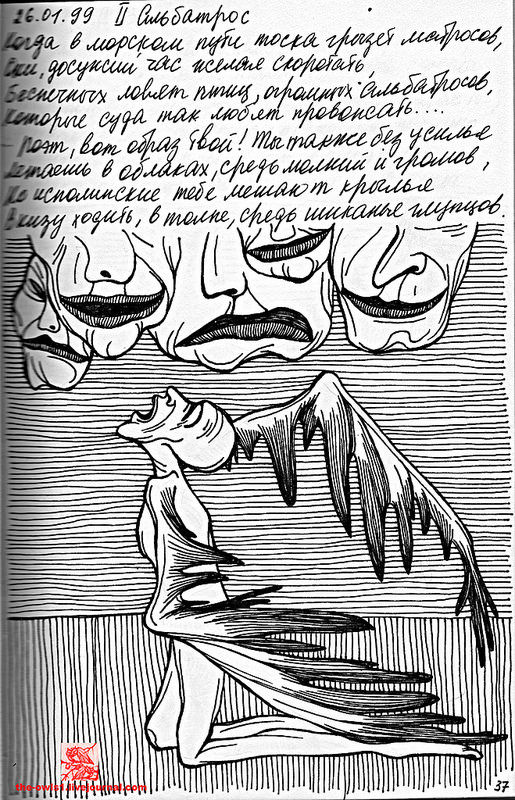 26.01.99 II Альбатрос
Когда в морском пути тоска грызет матросов,
Они, досужий час желая скоротать,
Беспечных ловят птиц, огромных Альбатросов,
Которые суда так любят провожать....
– Поэт, вот образ твой! Ты также без усилья
Летаешь в облаках, средь молний и громов,
Но исполинские тебе мешают крылья
Внизу ходить, в толпе, средь шиканья глупцов.
37